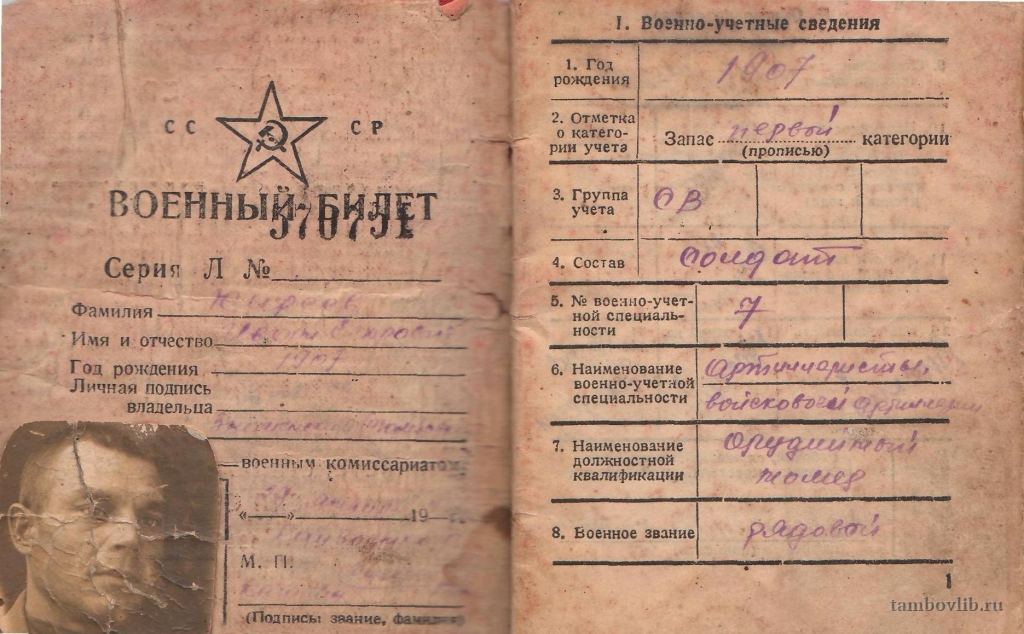 СС СР
ВОЕННЫЙ БИЛЕТ
570751
Серия Л №
Фамилия
Имя и отчество Иван
Год рождения 1907
Личная подпись
владельца
военным комиссариатом
« » 19 г.
М. П.
(Подписи звание, фамилия
I. Военно-учетные сведения
1. Год
рождения
1907
2. Отметка
о катего-
рии учета
Запас первой категории
(прописью)
3. Группа
учета
СВ
4. Состав солдат
5. № военно-учет-
ной специаль-
ности
7
6. Наименование
военно-учетной
специальности
Артиллеристы
войсковой артиллерии
7. Наименование
должностной
квалификации
орудийный
номер
8. Военное звание рядовой
1
tambovlib.ru